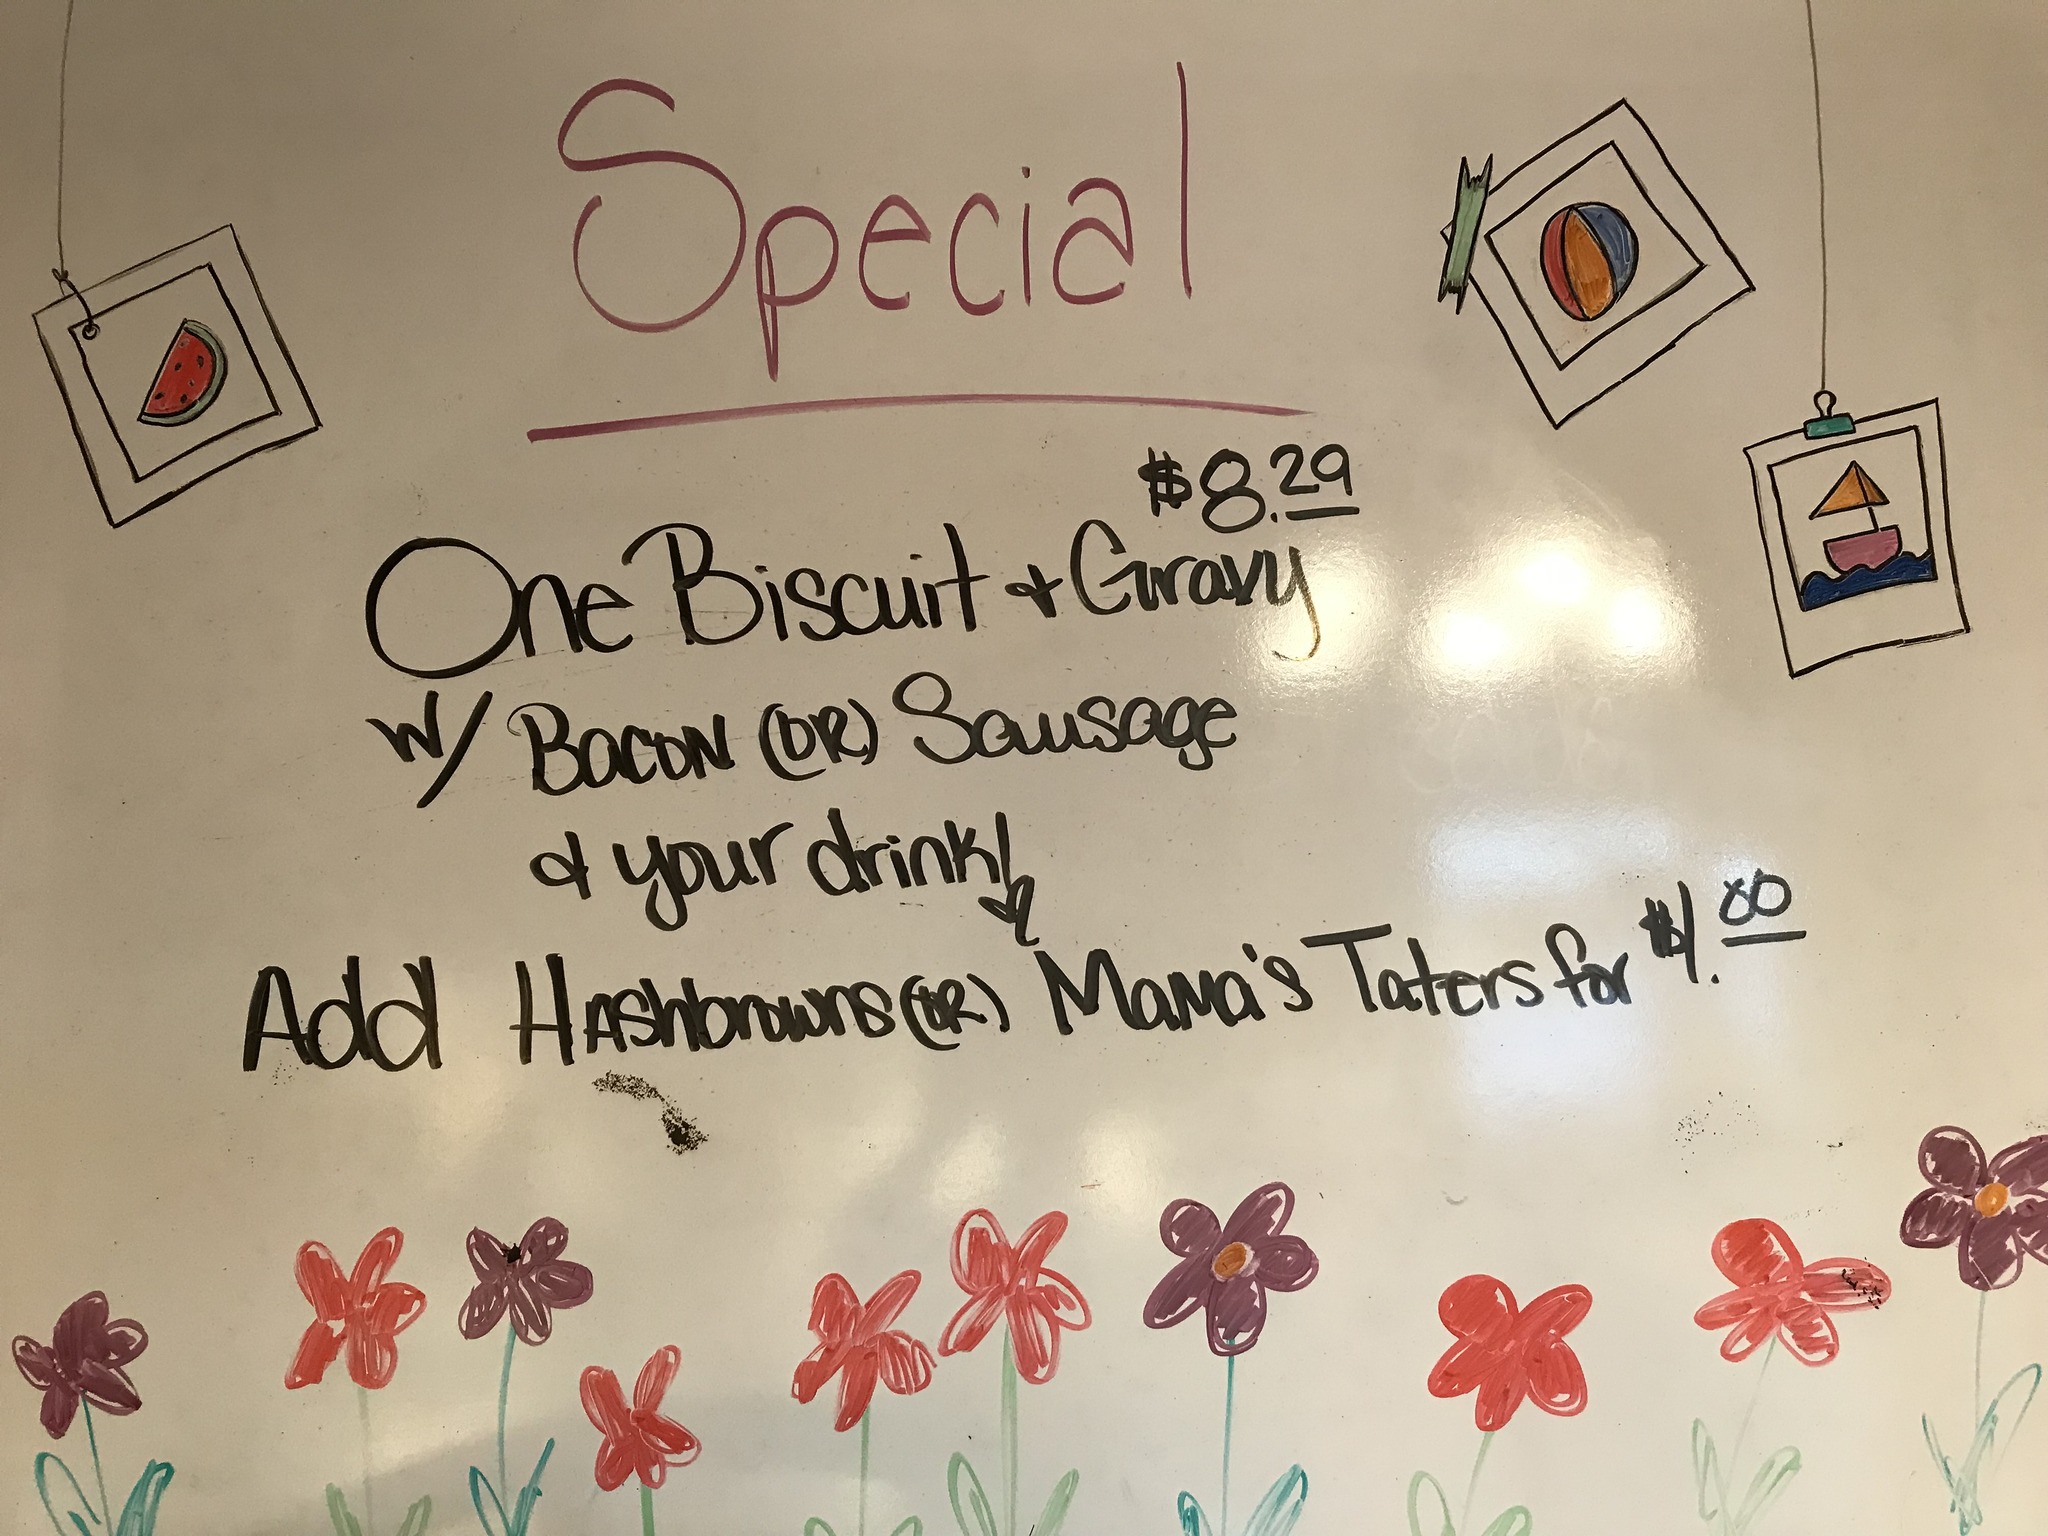 Special
$8.29
One Biscuit & Gravy
w/ Bacon (OR) Sausage
& your drink!
Add Hashbrowns (OR) Mama's Taters for $1.00